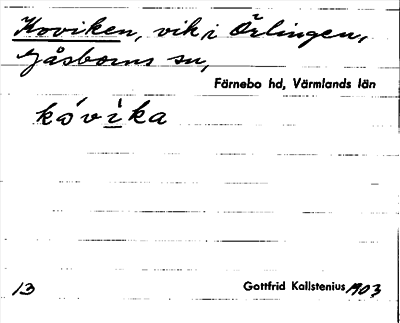 Koviken, vik i Örlingen,
Gåsborns sn,
Färnebo hd, Värmlands län
kóvika
13
Gottfrid Kallstenius 1903